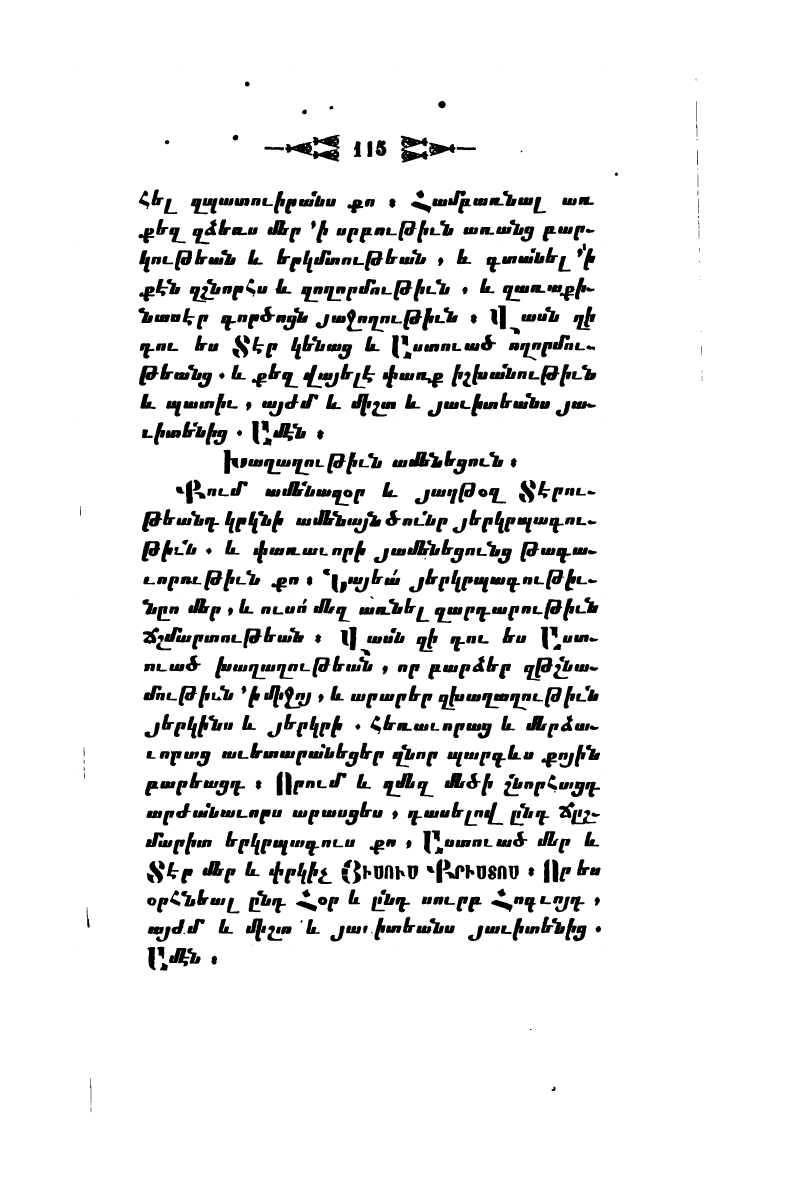 115
հել զպատուիրանս քո ։ Համբառնալ առ
քեզ զձեռս մեր ՚ի սրբութիւն առանց բար-
կութեան և երկմտութեան , և գտանել ՚ի
քէն զշնորհս և զողորմութիւն , և զառաքի-
նասէր գործոցն յաջողութիւն ։ Վասն զի
դու ես Տէր կենաց և Աստուած ողորմու-
թեանց . և քեզ վայելէ փառք իշխանութիւն
և պատիւ , այժմ և միշտ և յաւիտեանս յա-
ւիտենից . Ամէն ։
Խաղաղութիւն ամենեցուն ։
Քում ամենազօր և յաղթօղ Տէրու-
թեանդ կրկնի ամենայն ծունր յերկրպագու-
թիւն . և փառաւորի յամենեցունց թագա-
ւորութիւն քո ։ Նայեա՛ յերկրպագութիւ-
նըս մեր , և ուսո՛ մեզ առնել զարդարութիւն
ճշմարտութեան ։ Վասն զի դու ես Աստ-
ուած խաղաղութեան , որ բարձեր զթշնա-
մութիւն ՚ի միջոյ , և արարեր զխաղաղութիւն
յերկինս և յերկրի . հեռաւորաց և մերձա-
ւորաց աւետարանեցեր զնոր պարգևս քոյին
բարեացդ ։ Որում և զմեզ մեծի շնորհացդ
արժանաւորս արասցես , դասելով ընդ ճըշ-
մարիտ երկրպագուս քո , Աստուած մեր և
Տէր մեր և փրկիչ ՅԻՍՈՒՍ ՔՐԻՍՏՈՍ ։ Որ ես
օրհնեալ ընդ Հօր և ընդ սուրբ Հոգւոյդ ,
այժմ և միշտ և յաւիտեանս յաւիտենից .
Ամէն ։